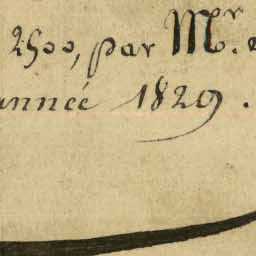 2500, par Mr.
année 1829.